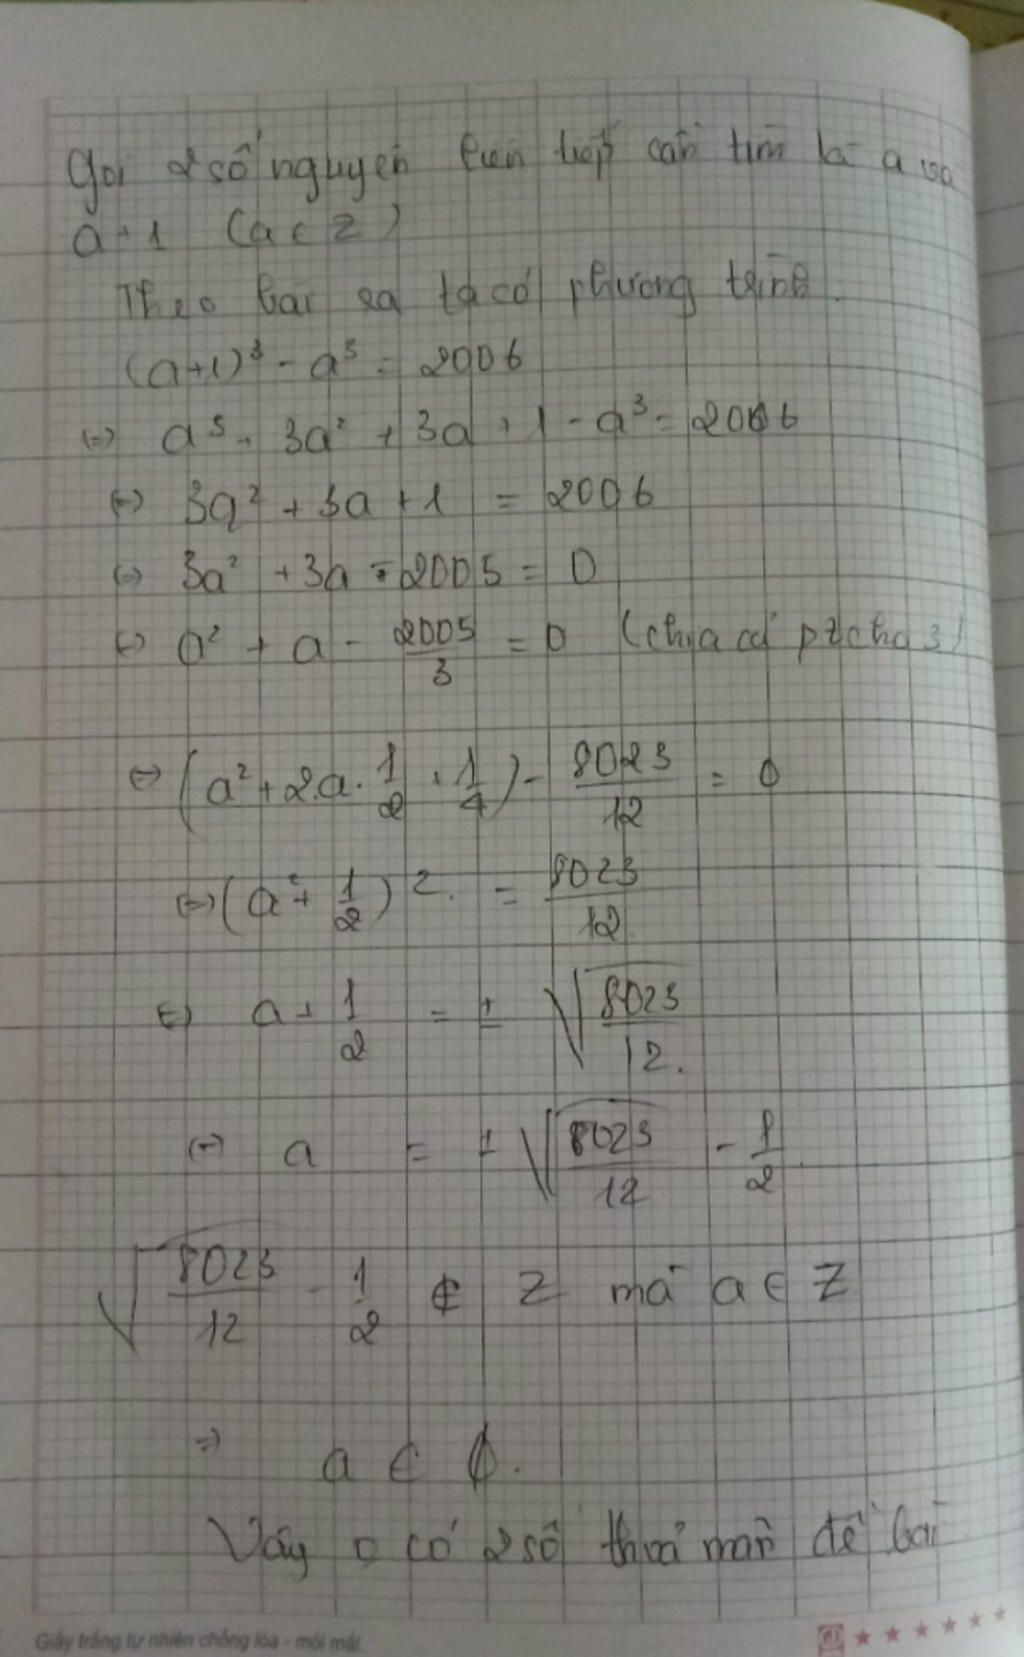 Gọi 2 số nguyên liên tiếp cần tìm là a và
a + 1 (a ∈ Z)
Theo bài ra ta có phương trình
(a+1)³ - a³ = 2006
(=) a³ + 3a² + 3a + 1 - a³ = 2006
(=) 3a² + 3a + 1 = 2006
(=) 3a² + 3a - 2005 = 0
(=) a² + a - 2005/3 = 0 (chia cả pt cho 3)
(=) (a² + 2.a.1/2 + 1/4) - 8023/12 = 0
(=) (a² + 1/2)² = 8023/12
(=) a + 1/2 = ± √(8023/12)
(=) a = ± √(8023/12) - 1/2
√(8023/12) - 1/2 ∉ Z mà a ∈ Z
=> a ∈ ∅.
Vậy 0 có 2 số thoả mãn đề bài
Giấy trắng tự nhiên chống lóa - mỏi mắt.